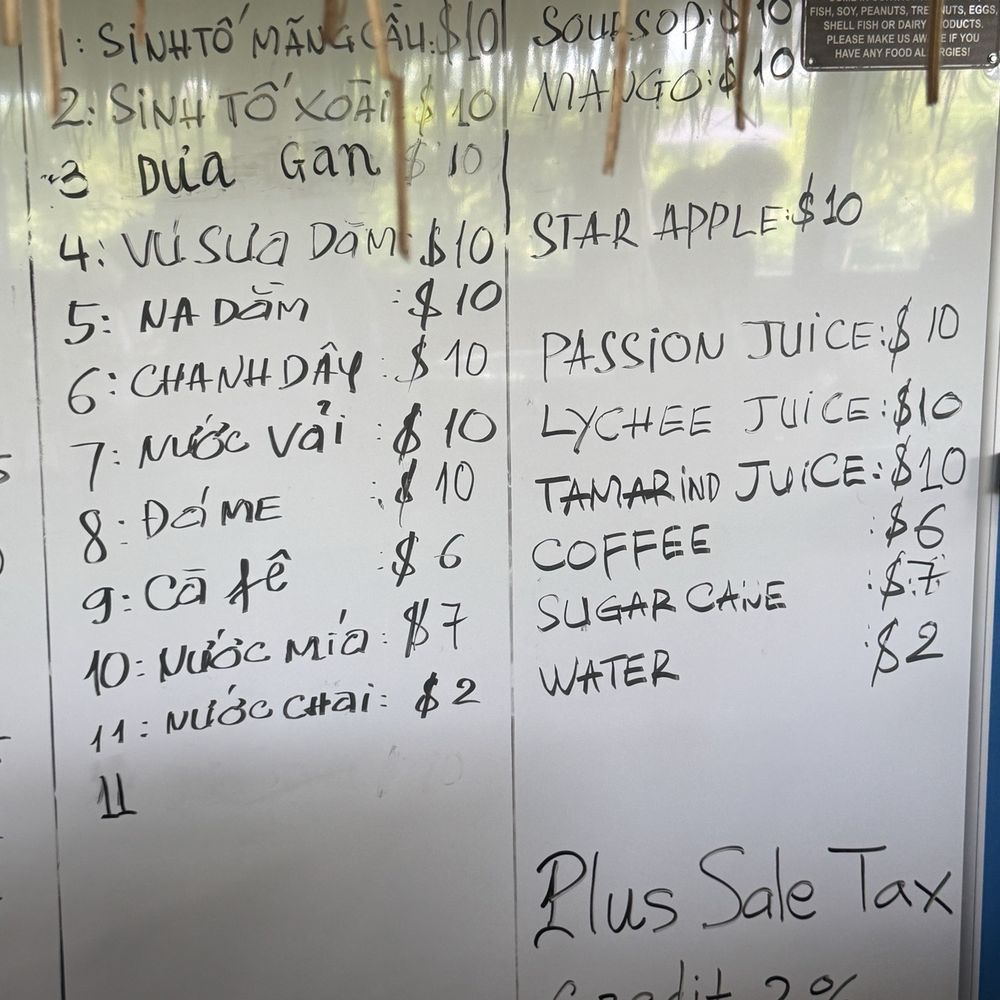 1: SINH TỐ MÃNG CẦU: $10
2: SINH TỐ XOÀI $ 10
3 DƯA GAN $ 10
4: VÚ SỮA DẦM: $10
5: NA DẦM : $ 10
6: CHANH DÂY : $ 10
7: NƯỚC VẢI : $ 10
8: ĐÁ ME : $ 10
9: Cà fê : $ 6
10: NƯỚC MÍA: $7
11: NƯỚC CHAI: $ 2
11
SOURSOP: $ 10
MANGO: $ 10
STAR APPLE: $10
PASSION JUICE: $ 10
LYCHEE JUICE: $10
TAMARIND JUICE: $10
COFFEE : $6
SUGAR CANE : $7
WATER : $2
Plus Sale Tax
FISH, SOY, PEANUTS, TREE NUTS, EGGS,
SHELL FISH OR DAIRY PRODUCTS.
PLEASE MAKE US AWARE IF YOU
HAVE ANY FOOD ALLERGIES!